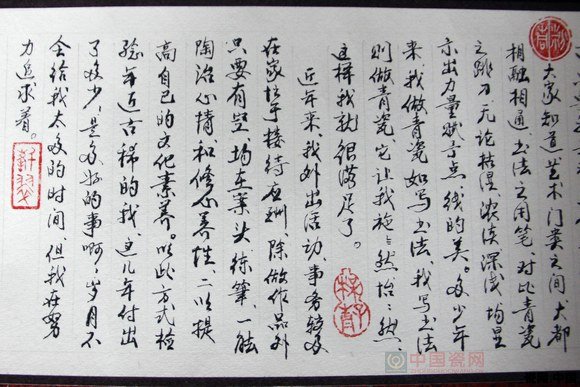 大家知道艺术门类之间大都
相融相通，书法之用笔，对比青瓷
之跳刀，无论枯湿、浓淡、深浅均显
示出力量赋予点线的美。多少年
来，我做青瓷如写书法，我写书法
则做青瓷，它让我施施然怡怡然，
这样我就很满足了。
近年来，我外出活动、事务较多
在家忙于接待应酬，除做作品外
只要有空均在案头练笔，一能
陶冶心情和修心养性，二以提
高自己的文化素养。以此方式检
验年近古稀的我，这几年付出
了多少，是多好的事啊，岁月不
会给我太多的时间，但我在努
力追求着。
中国瓷网